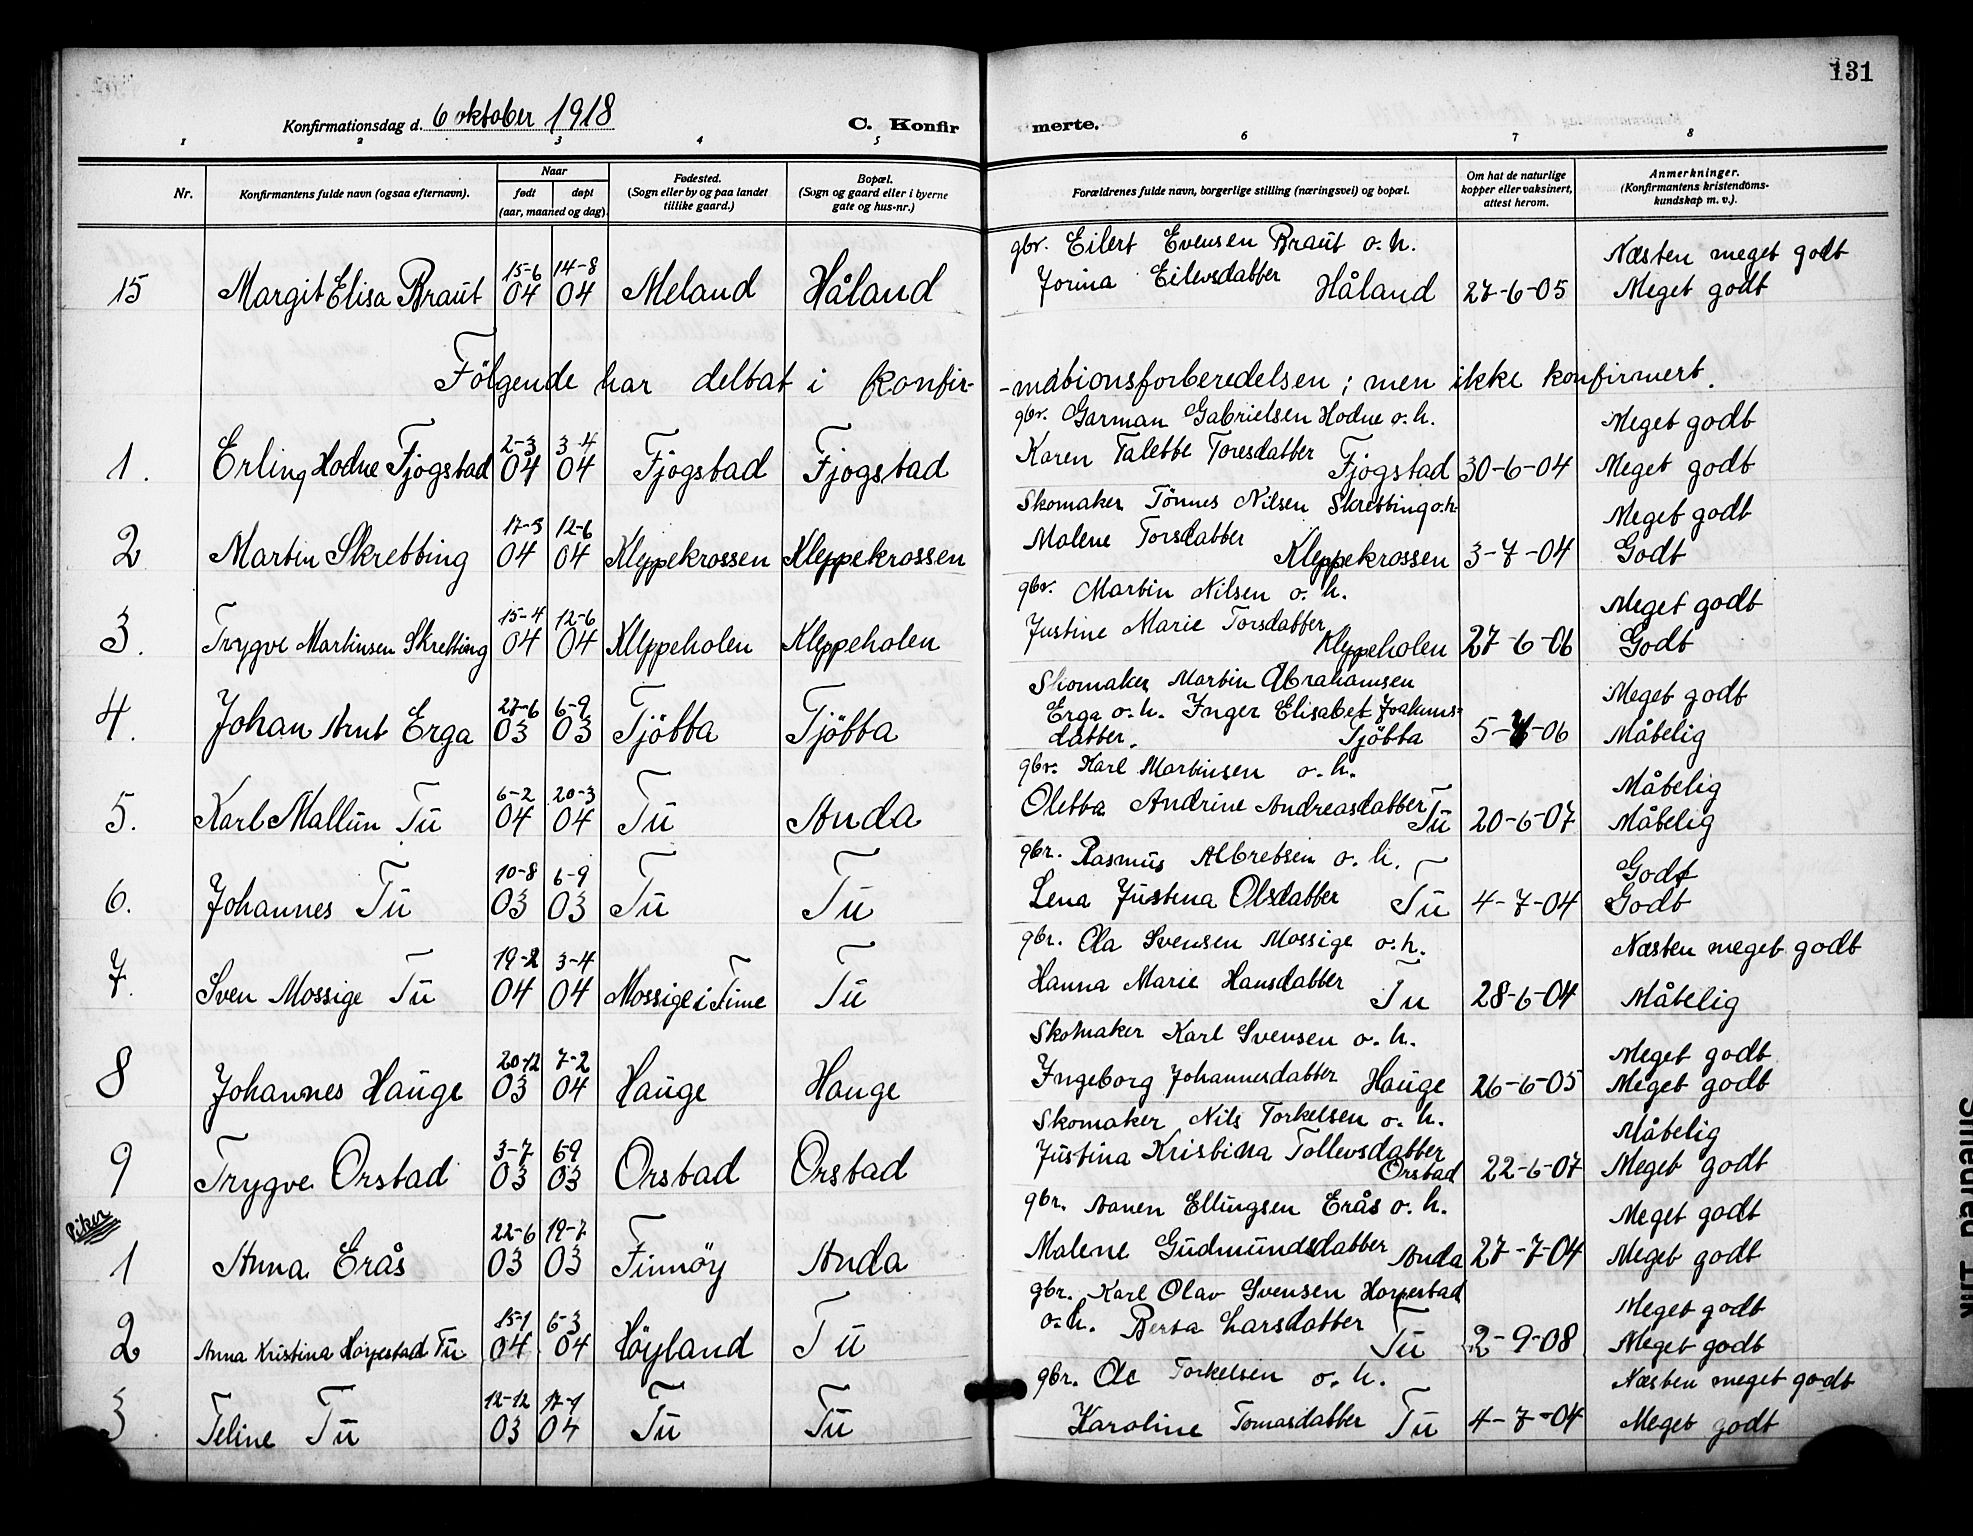 131
Konfirmationsdag d. 6 oktober 1918 C. Konfir merte.
1 2 3 4 5 6 7 8
Nr. Konfirmantens fulde navn (ogsaa efternavn). Naar født døpt (aar, maaned og dag) Fødested. (Sogn eller by og paa landet tillike gaard.) Bopæl. (Sogn og gaard eller i byerne gate og hus-nr.) Forældrenes fulde navn, borgerlige stilling (næringsvei) og bopæl. Om hat de naturlige kopper eller vaksinert, attest herom. Anmerkninger. (Konfirmantens kristendoms-kundskap m. v.).
gbr. Eilert Evensen Braut o. h. Næsten meget godt
15 Margit Elisa Braut 15-6 04 14-8 04 Meland Håland Jorina Eilevsdatter Håland 27-6-05 Meget godt
Følgende har deltat i konfir- -mationsforberedelsen; men ikke konfirmert.
gbr. Garman Gabrielsen Hodne o. h. Meget godt
1. Erling Hodne Fjogstad 2-3 04 3-4 04 Fjogstad Fjogstad Karen Talette Toresdatter Fjogstad 30-6-04 Meget godt
Skomaker Tönnes Nilsen Skretting o. h. Meget godt
2 Martin Skretting 17-5 04 12-6 04 Kleppekrossen Kleppekrossen Malene Torsdatter Kleppekrossen 3-7-04 Godt
gbr. Martin Nilsen o. h. Meget godt
3. Trygve Martinsen Skretting 15-4 04 12-6 04 Kleppeholen Kleppeholen Justine Marie Torsdatter Kleppeholen 27-6-06 Godt
Skomaker Martin Abrahamsen Meget godt
Erga o. h. Inger Elisabet Joakims-
4. Johan Arnt Erga 27-6 03 6-9 03 Tjötta Tjötta datter. Tjötta 5- -06 Måtelig
gbr. Karl Martinsen o. h. Måtelig
5. Karl Mallun Tu 6-2 04 20-3 04 Tu Anda Oletta Andrine Andreasdatter Tu 20-6-07 Måtelig
gbr. Rasmus Albretsen o. h. Godt
6. Johannes Tu 10-8 03 6-9 03 Tu Tu Lena Justina Olsdatter Tu 4-7-04 Godt
gbr. Ola Svensen Mossige o. h. Næsten meget godt
7. Sven Mossige Tu 19-2 04 3-4 04 Mossige i Time Tu Hanna Marie Hansdatter Tu 28-6-04 Måtelig
Skomaker Karl Svensen o. h. Meget godt
8 Johannes Hauge 20-12 03 7-2 04 Hauge Hauge Ingeborg Johannesdatter Hauge 26-6-05 Meget godt
Skomaker Nils Torkelsen o. h. Måtelig
9 Trygve Orstad 3-7 03 6-9 03 Orstad Orstad Justina Kristina Tollevsdatter Orstad 22-6-07 Meget godt
Piker
gbr. Aanen Ellingsen Erås o. h. Meget godt
1 Anna Erås 22-6 03 19-7 03 Finnöy Anda Malene Gudmundsdatter Anda 27-7-04 Meget godt
gbr. Karl Olav Svensen Horpestad Meget godt
2 Anna Kristina Horpestad Tu 15-1 04 6-3 04 Höyland Tu o. h. Berta Larsdatter Tu 2-9-08 Meget godt
gbr. Ole Torkelsen o. h. Næsten meget godt
3 Teline Tu 12-12 03 17-1 04 Tu Tu Karoline Tomasdatter Tu 4-7-04 Meget godt